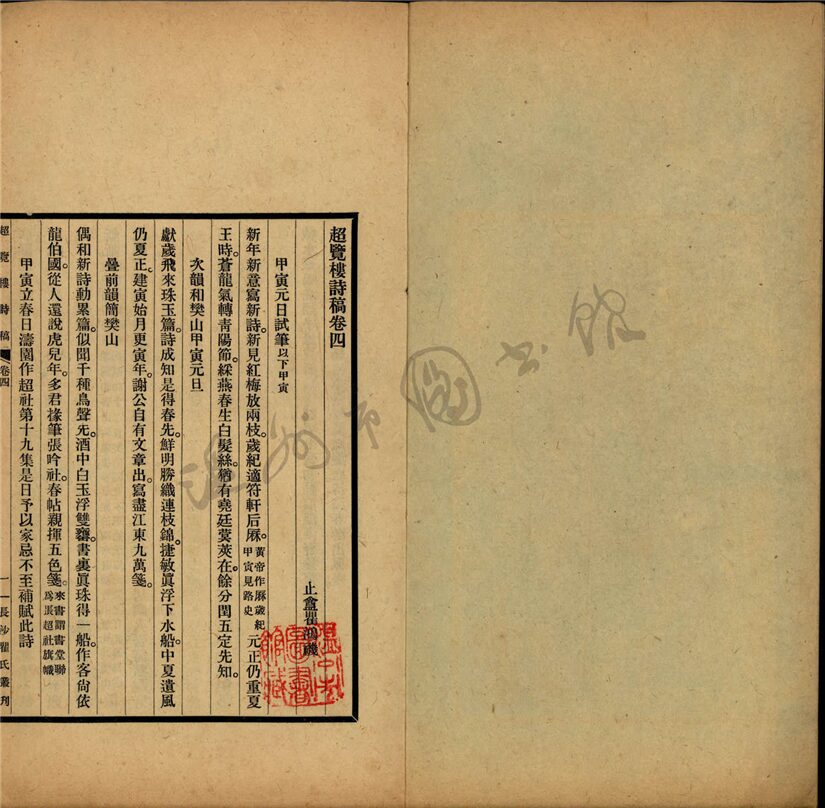 超覽樓詩稿卷四
止盦瞿鴻禨
甲寅元日試筆以下甲寅
新年新意寫新詩。新見紅梅放兩枝。歲紀適符軒后厤。黃帝作厤歲紀甲寅見路史元正仍重夏
王時。蒼龍氣轉青陽節。綵燕春生白髮絲。猶有堯廷蓂莢在。餘分閏五定先知。
次韻和樊山甲寅元旦
獻歲飛來珠玉篇。詩成知是得春先。鮮明勝織連枝錦。捷敏眞浮下水船。中夏遺風
仍夏正。建寅始月更寅年。謝公自有文章出。寫盡江東九萬箋。
疊前韻簡樊山
偶和新詩動累篇。似聞千種鳥聲先。酒中白玉浮雙。書裏眞珠得一船。作客尙依
龍伯國。從人還說虎兒年。多君椽筆張吟社。春帖親揮五色箋。來書謂書堂聯爲張超社旗幟
甲寅立春日濤園作超社第十九集是日予以家忌不至補賦此詩
超覽樓詩稿
卷四
一
長沙瞿氏叢刊
溫州市圖書館
溫州市圖書館藏